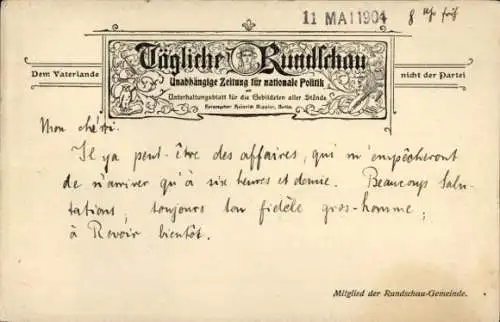 11 MAI 1904
8 Uhr früh
Tägliche Rundschau
Unabhängige Zeitung für nationale Politik
Dem Vaterlande
nicht der Partei
Unterhaltungsblatt für die Gebildeten aller Stände
Herausgeber Heinrich Rippler, Berlin.
Mon chéri.
Il y a peut-être des affaires, qui m'empêcheront
de n'arriver qu'à six heures et demie. Beaucoup Salu-
tations, toujours ton fidèle gros-homme,
à Revoir bientôt.
Mitglied der Rundschau-Gemeinde.